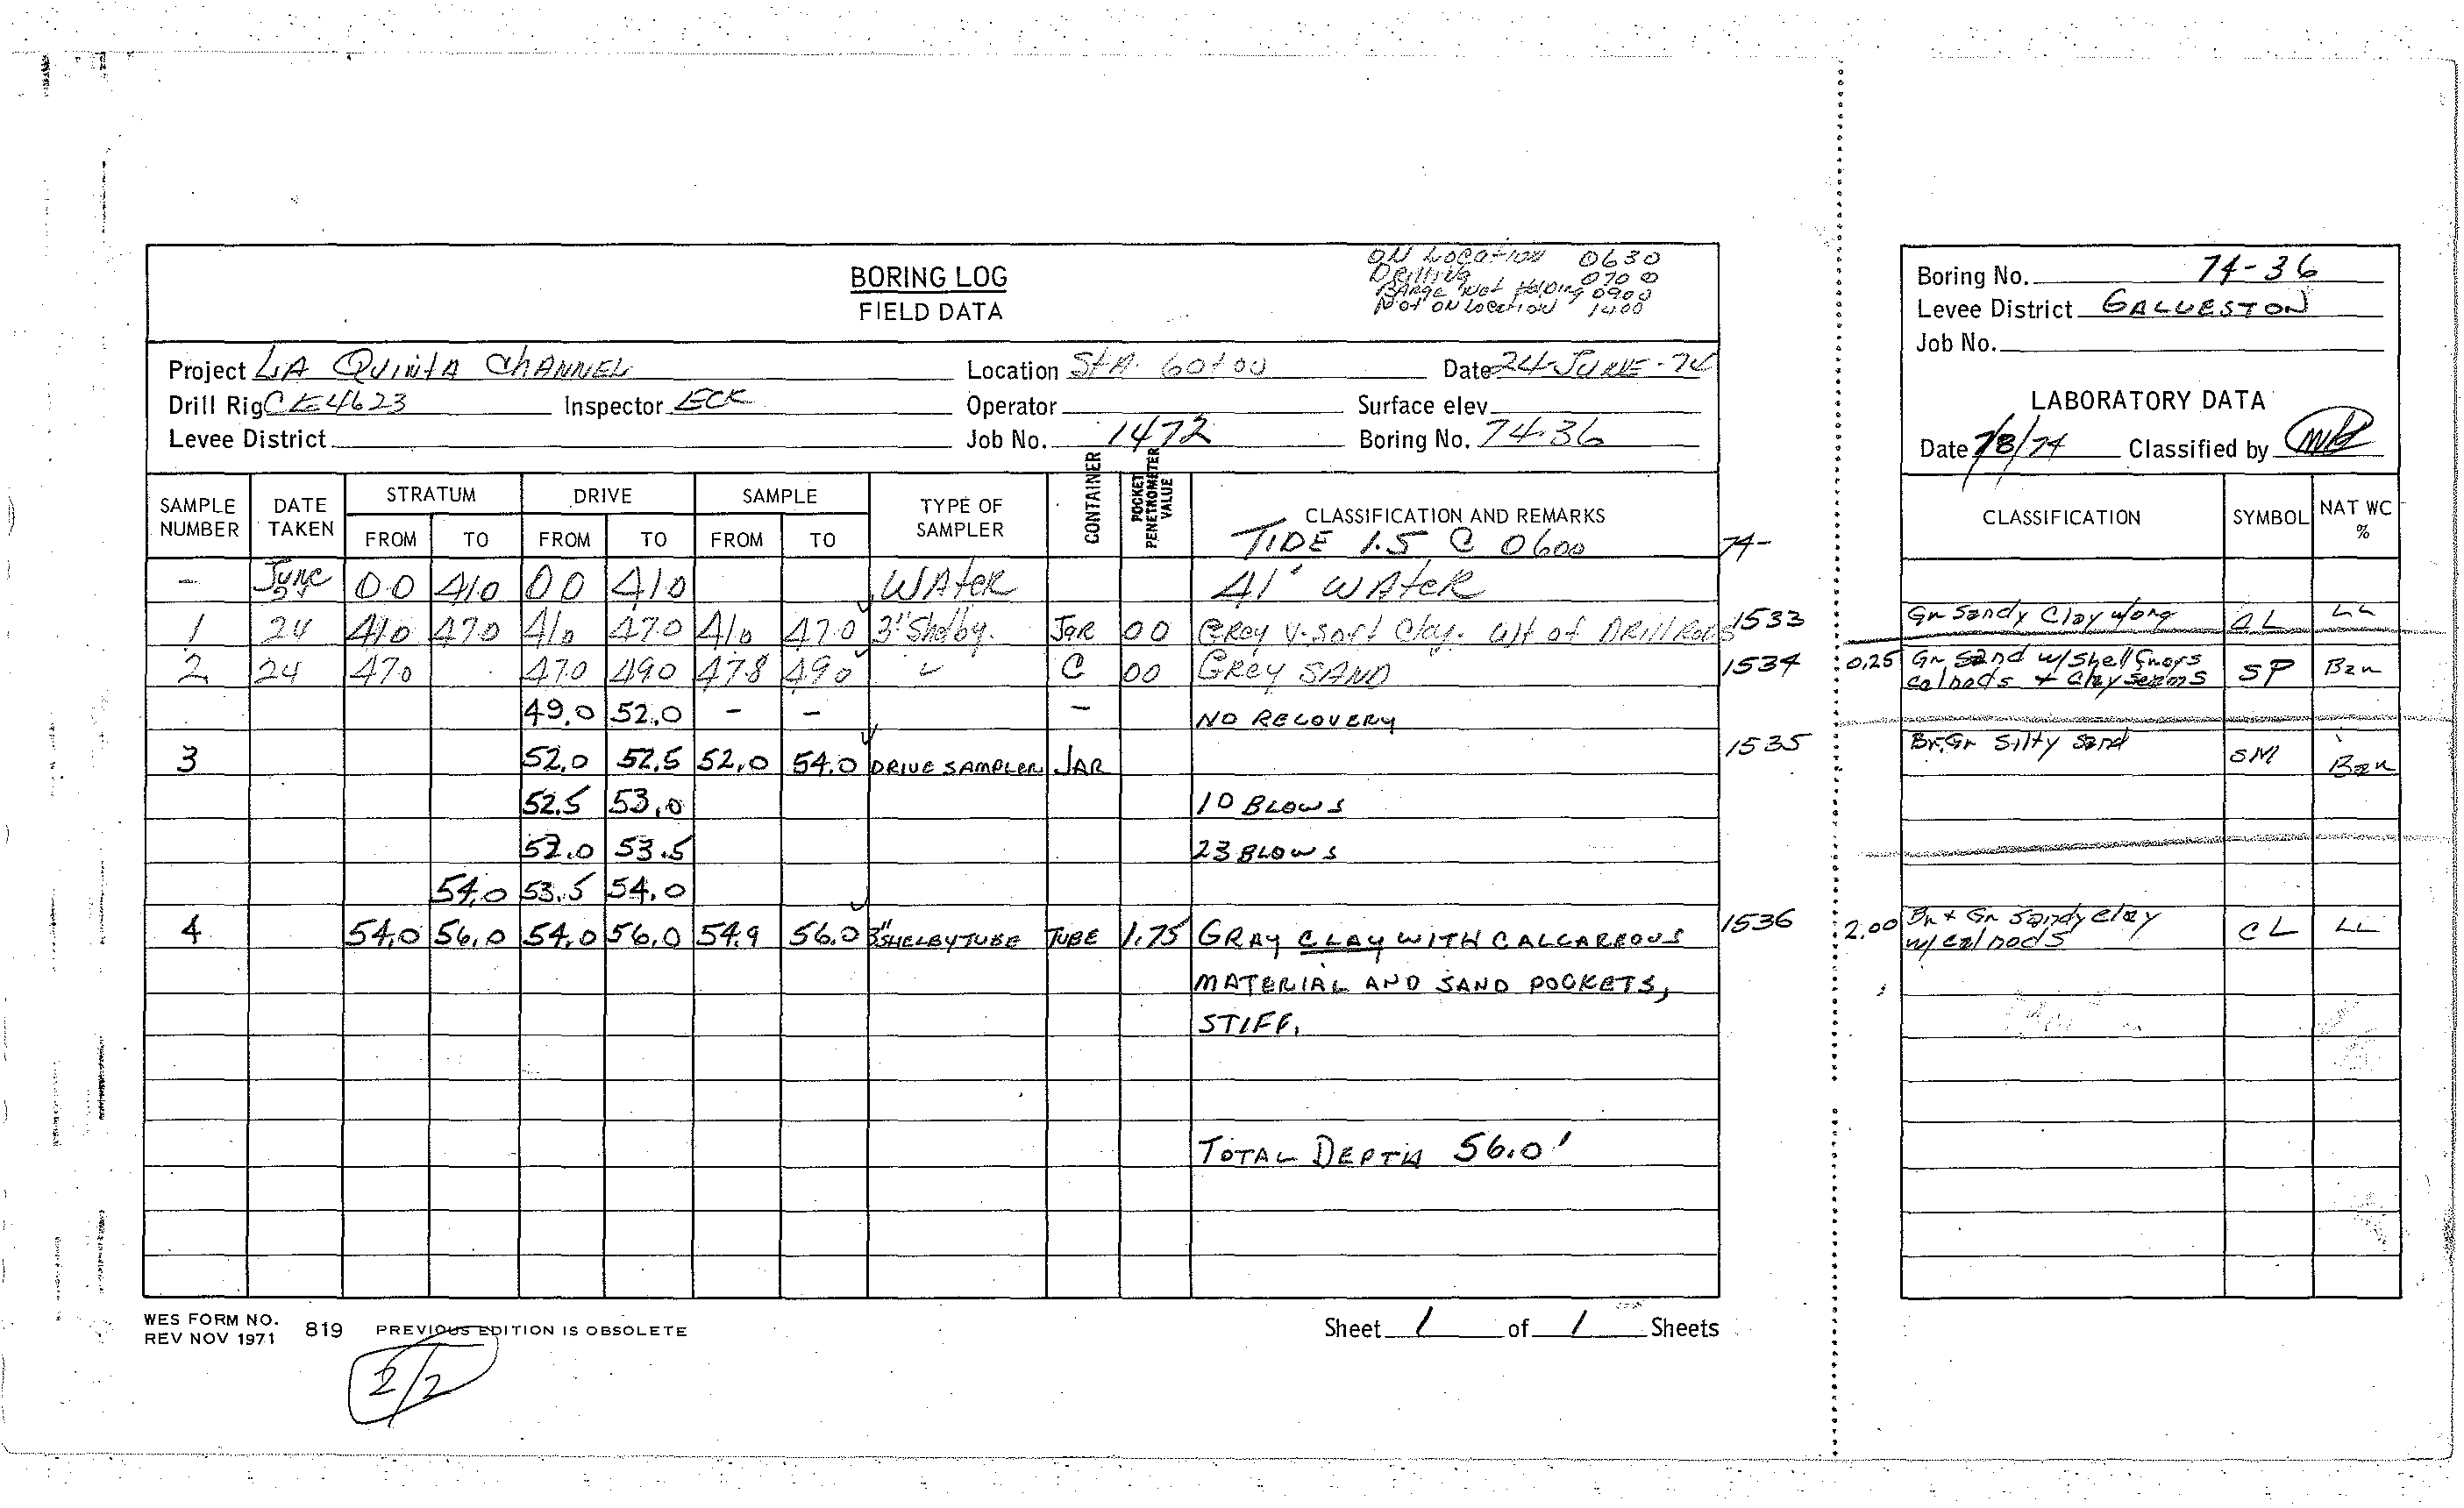 BORING LOG
FIELD DATA
ON LOCATION 0630
Drilling 0700
BARGE Not Holding 0900
Not ON Location 1400
Project LA QUINTA CHANNEL Location StA. 60+00 Date 24-JUNE-74
Drill Rig CE4623 Inspector ECK Operator Surface elev.
Levee District Job No. 1472 Boring No. 74-36
SAMPLE NUMBER DATE TAKEN STRATUM FROM TO DRIVE FROM TO SAMPLE FROM TO TYPE OF SAMPLER CONTAINER POCKET PENETROMETER VALUE CLASSIFICATION AND REMARKS
TIDE 1.5 @ 0600 74-
- June 24 0.0 41.0 0.0 41.0 WAteR 41' WAteR
1 24 41.0 47.0 41.0 47.0 41.0 47.0 3" Shelby. JaR 00 GRey V-Soft Clay. Wt of DRill Rods 1533
2 24 47.0 47.0 49.0 47.8 49.0 " C 00 GRey SAND 1534
49.0 52.0 - - - NO RECOVERY
3 52.0 52.5 52.0 54.0 DRIVE SAMPLER JAR 1535
52.5 53.0 10 BLOWS
53.0 53.5 23 BLOWS
54.0 53.5 54.0
4 54.0 56.0 54.0 56.0 54.9 56.0 3" SHELBY TUBE TUBE 1.75 GRAY CLAY WITH CALCAREOUS 1536
MATERIAL AND SAND POCKETS,
STIFF.
TOTAL DEPTH 56.0'
WES FORM NO. 819 PREVIOUS EDITION IS OBSOLETE
REV NOV 1971
Sheet 1 of 1 Sheets
2/2
Boring No. 74-36
Levee District GALVESTON
Job No.
LABORATORY DATA
Date 7/8/74 Classified by
CLASSIFICATION SYMBOL NAT WC %
Gr Sandy Clay w/org CL LL
0.25 Gr Sand w/shell frags SP Ban
cal nods + clay seams
Br.Gr Silty Sand SM Ban
2.00 Br + Gr Sandy clay CL LL
w/ cal nods